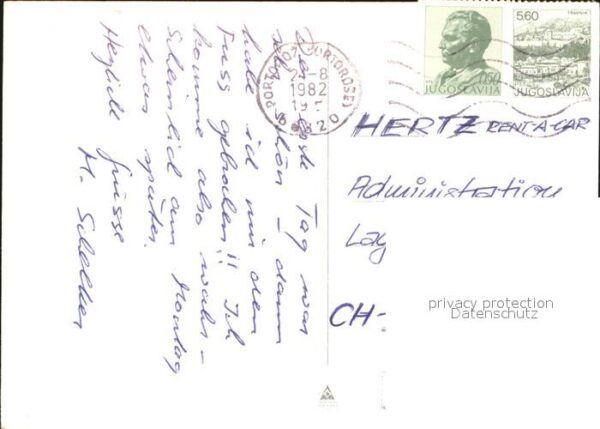 Der erste Tag war
sehr schön – dann
habe ich mir den
Fuss gebrochen!! Ich
komme also wahr-
scheinlich am Montag
etwas später.
Herzliche Grüsse
M.
PORTOROŽ (PORTOROSE)
2-8
1982
6320
0.50
JUGOSLAVIJA
5.60
JUGOSLAVIJA
HERTZ RENT-A-CAR
Administration
Lag
CH-
privacy protection
Datenschutz